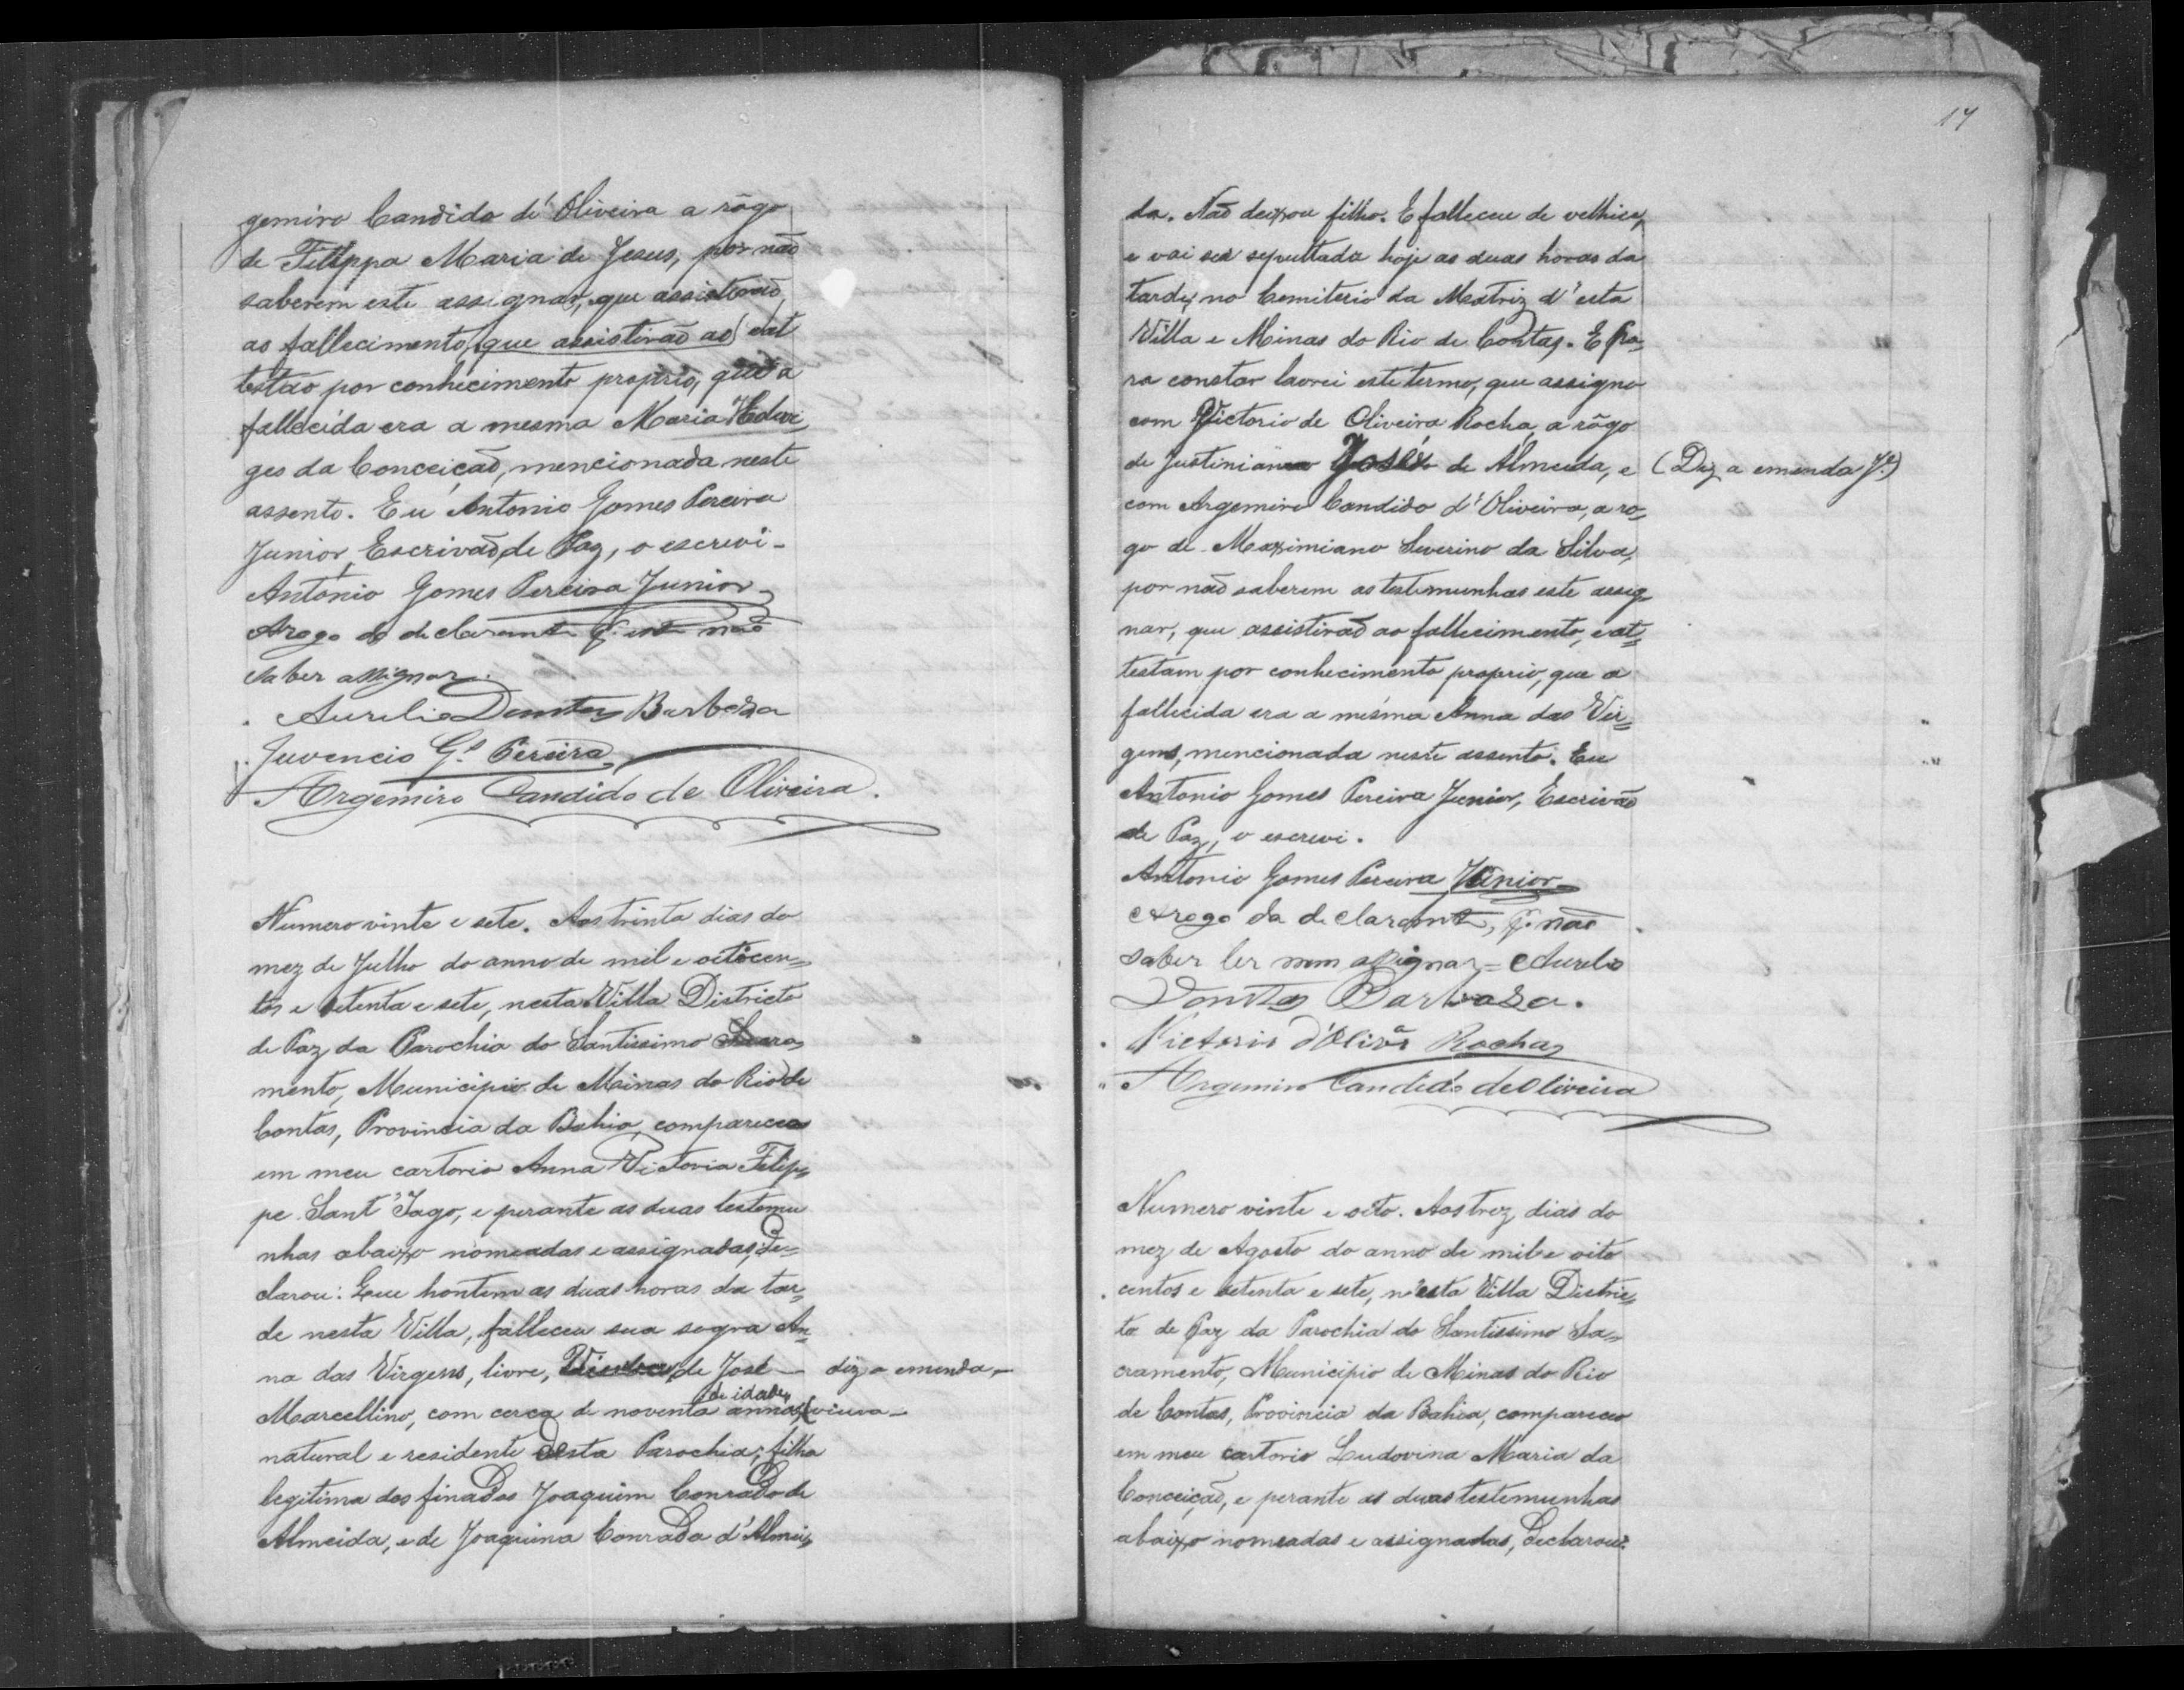 gemiro Candido d'Oliveira a rôgo
de Felippa Maria de Jesus, por não
saberem este assignar, que assistirão
ao fallecimento, (que assistirão ao) eat
testão por conhecimento proprio, que a
fallecida era a mesma Maria Hedwi
ges da Conceição, mencionada neste
assento. Eu Antonio Gomes Pereira
Junior, Escrivão de Paz, o escrevi-
Antonio Gomes Pereira Junior
Arogo do declarante p. este não
saber assignar.
Aurelio Dantas Barboza
Juvencio Gs. Pereira
Argemiro Candido de Oliveira.
Numero vinte e sete. Aos trinta dias do
mez de Julho do anno de mil e oitocen=
tos e setenta e sete, nesta Villa Districto
de Paz da Parochia do Santissimo Sacra=
mento, Municipio de Minas do Rio de
Contas, Provincia da Bahia, compareceo
em meu cartorio Anna Victoria Felip=
pe Sant'Iago, e perante as duas testemu
nhas abaixo nomeadas e assignadas, de=
clarou: Que hontem as duas horas da tar=
de nesta Villa, falleceu sua sogra An=
na das Virgens, livre, de José — diz a emenda,-
de idade,
Marcellino, com cerca de noventa annos, (viuva-
natural e residente desta Parochia; filha
legitima dos finados Joaquim Conrado de
Almeida, e de Joaquina Conrada d'Almei=
17
da. Não deixou filho. E falleceu de velhice,
e vai ser sepultada hoje as duas horas da
tarde, no Cemiterio da Matriz d'esta
Villa e Minas do Rio de Contas. E pa=
ra constar lavrei este termo, que assigno
com Victorio de Oliveira Rocha, a rôgo
de José de Almeida, e (Diz a emenda Jé)
com Argemiro Candido d'Oliveira, a ro=
go de Maximiano Severino da Silva,
por não saberem as testemunhas este assig=
nar, que assistirão ao fallecimento, e at=
testam por conhecimento proprio, que a
fallecida era a mesma Anna das Vir=
gens, mencionada neste assento. Eu
Antonio Gomes Pereira Junior, Escrivão
de Paz, o escrevi.
Antonio Gomes Pereira Junior
Arogo da declarante, p. não
saber ler nem assignar = Aurelio
Dantas Barboza.
Victorio d'Olivra Rocha
Argemiro Candido de Oliveira
Numero vinte e oito. Aos trez dias do
mez de Agosto do anno de mil e oito
centos e setenta e sete, n'esta Villa Distric=
to de Paz da Parochia do Santissimo Sa=
cramento, Municipio de Minas do Rio
de Contas, Provincia da Bahia, compareceo
em meu cartorio Ludovina Maria da
Conceição, e perante as duas testemunhas
abaixo nomeadas e assignadas, declarou: